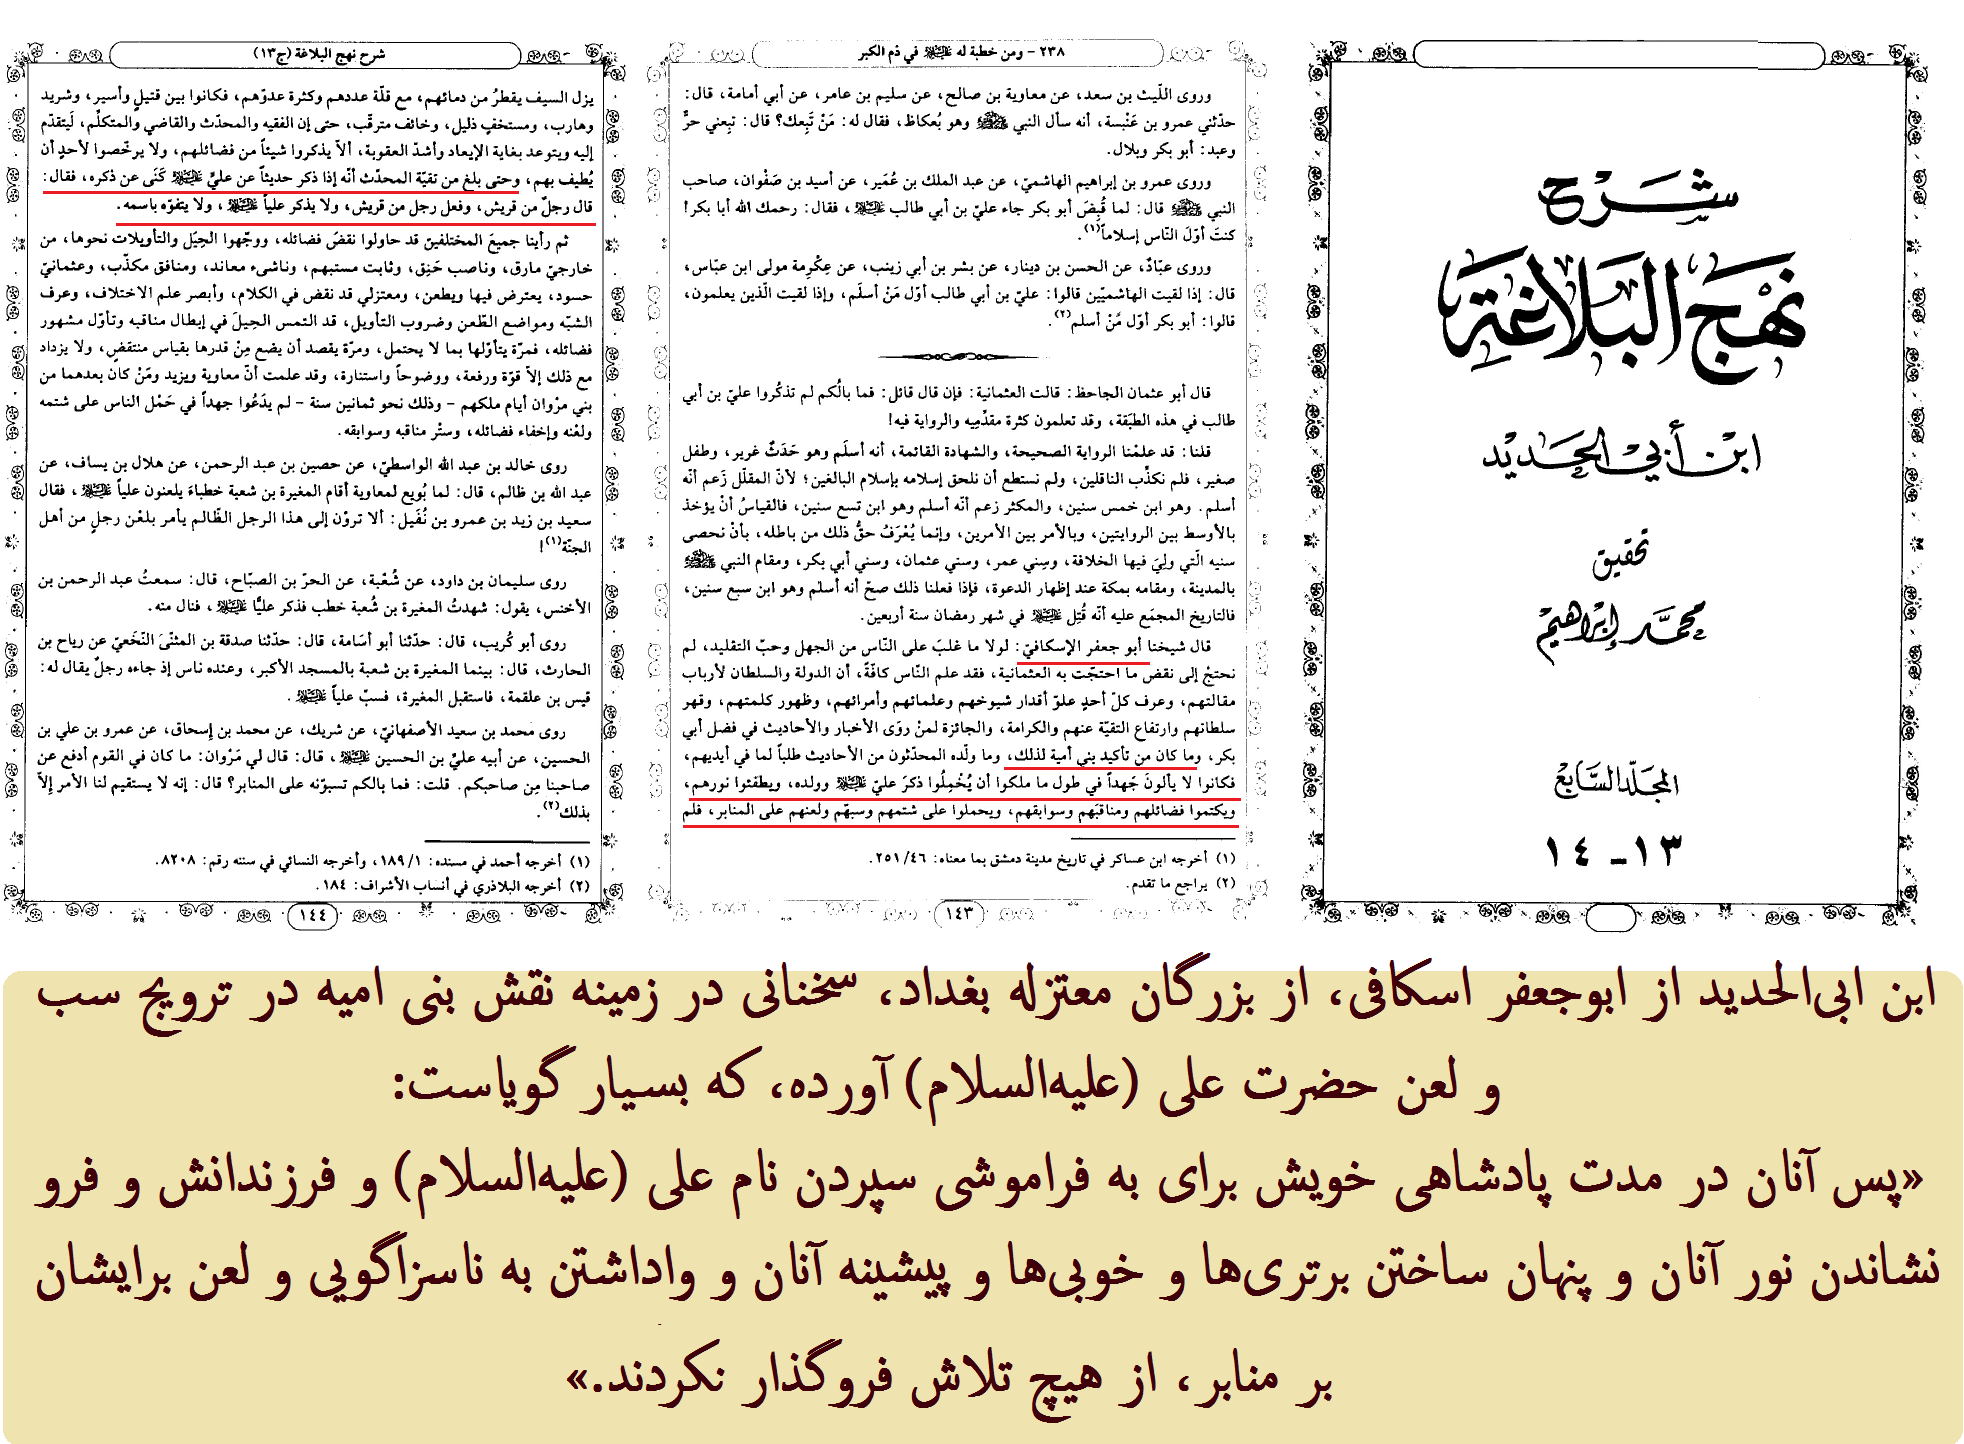 شرح
نهج البلاغة
ابن أبي الحديد
تحقيق
محمد إبراهيم
المجلد السابع
١٣ - ١٤
٢٣٨ - ومن خطبة له عليه السلام في ذم الكبر
وروى اللّيث بن سعد، عن معاوية بن صالح، عن سليم بن عامر، عن أبي أمامة، قال:
حدّثني عمرو بن عَنْبسة، أنه سأل النبي ﷺ وهو بُعكاظ، فقال له: مَنْ تَبِعك؟ قال: تبِعني حرٌّ
وعبد: أبو بكر وبلال.
وروى عمرو بن إبراهيم الهاشميّ، عن عبد الملك بن عُمَير، عن أسيد بن صَفْوان، صاحب
النبي ﷺ قال: لما قُبِضَ أبو بكر جاء عليّ بن أبي طالب عليه السلام، فقال: رحمك الله أبا بكر!
كنتَ أوّلَ النّاس إسلاماً(١).
وروى عبّادٌ، عن الحسن بن دينار، عن بشر بن أبي زينب، عن عِكْرِمة مولى ابن عبّاس،
قال: إذا لقيت الهاشميّين قالوا: عليّ بن أبي طالب أوّل مَنْ أسلَم، وإذا لقيت الّذين يعلمون،
قالوا: أبو بكر أوّل مَنْ أسلم(٢).
قال أبو عثمان الجاحظ: قالت العثمانية: فإن قال قائل: فما بالُكم لم تذكُروا عليّ بن أبي
طالب في هذه الطبَقة، وقد تعلمون كثرة مقدِّميه والرواية فيه!
قلنا: قد علمْنا الرواية الصحيحة، والشهادة القائمة، أنه أسلَم وهو حَدَثٌ غرير، وطفل
صغير، فلم نكذِّب الناقلين، ولم نستطع أن نلحق إسلامه بإسلام البالغين؛ لأنّ المقلّل زَعم أنّه
أسلم. وهو ابن خمس سنين، والمكثر زعم أنّه أسلم وهو ابن تسع سنين، فالقياسُ أنْ يؤخذ
بالأوسط بين الروايتين، وبالأمر بين الأمرين، وإنما يُعْرَفُ حقُّ ذلك من باطله، بأنْ نحصى
سنيه الّتي ولِيَ فيها الخلافة، وسِني عمر، وسني عثمان، وسني أبي بكر، ومقام النبي ﷺ
بالمدينة، ومقامه بمكة عند إظهار الدعوة، فإذا فعلنا ذلك صحّ أنه أسلم وهو ابن سبع سنين،
فالتاريخ المجمَع عليه أنّه قُتِل عليه السلام في شهر رمضان سنة أربعين.
قال شيخنا أبو جعفر الإسكافيّ: لولا ما غلبَ على النّاس من الجهل وحبّ التقليد، لم
نحتجْ إلى نقض ما احتجّت به العثمانية، فقد علم النّاس كافّةً، أن الدولة والسلطان لأرباب
مقالتهم، وعرف كلّ أحدٍ علوّ أقدار شيوخهم وعلمائهم وأمرائهم، وظهور كلمتهم، وقهر
سلطانهم وارتفاع التقيّة عنهم والكرامة، والجائزة لمنْ روَى الأخبار والأحاديث في فضل أبي
بكر، وما كان من تأكيد بني أمية لذلك، وما ولّده المحدّثون من الأحاديث طلباً لما في أيديهم،
فكانوا لا يألونَ جَهداً في طول ما ملكوا أن يُخْمِلُوا ذكرَ عليّ عليه السلام وولده، ويطفئوا نورهم،
ويكتموا فضائلهم ومناقبَهم وسوابقهم، ويحملوا على شتمهم وسبهّم ولعنهم على المنابر، فلم
(١) أخرجه ابن عساكر في تاريخ مدينة دمشق بما معناه: ٢٥١/٤٦.
(٢) يراجع ما تقدم.
١٤٣
شرح نهج البلاغة (ج١٣)
يزل السيف يقطرُ من دمائهم، مع قلّة عددهم وكثرة عدوّهم، فكانوا بين قتيلٍ وأسير، وشريد
وهارب، ومستخفٍ ذليل، وخائف مترقّب، حتى إن الفقيه والمحدّث والقاضي والمتكلّم، لَيَتقدّم
إليه ويتوعد بغاية الإيعاد وأشدّ العقوبة، ألاّ يذكروا شيئاً من فضائلهم، ولا يرخّصوا لأحدٍ أن
يُطيف بهم، وحتى بلغ من تقيّة المحدّث أنّه إذا ذكر حديثاً عن عليّ عليه السلام كَنَى عن ذكره، فقال:
قال رجلٌ من قريش، وفعل رجل من قريش، ولا يذكر علياً عليه السلام، ولا يتفوّه باسمه.
ثم رأينا جميعَ المختلفين قد حاولوا نقضَ فضائله، ووجّهوا الحِيَل والتأويلات نحوها، من
خارجيّ مارق، وناصب حَنِق، وثابت مستبهم، وناشىء معاند، ومنافق مكذّب، وعثمانيّ
حسود، يعترض فيها ويطعن، ومعتزلي قد نقض في الكلام، وأبصر علم الاختلاف، وعرف
الشبّه ومواضع الطّعن وضروب التأويل، قد التمس الحِيلَ في إبطال مناقبه وتأوّل مشهور
فضائله، فمرّة يتأوّلها بما لا يحتمل، ومرّة يقصد أن يضع مِنْ قدرها بقياس منتقضٍ، ولا يزداد
مع ذلك إلاّ قوّة ورفعة، ووضوحاً واستنارة، وقد علمت أنّ معاوية ويزيد ومَنْ كان بعدهما من
بني مرْوان أيام ملكهم - وذلك نحو ثمانين سنة - لم يدَعُوا جهداً في حَمْل الناس على شتمه
ولعْنه وإخفاء فضائله، وستْر مناقبه وسوابقه.
روى خالد بن عبد الله الواسطيّ، عن حصين بن عبد الرحمن، عن هلال بن يساف، عن
عبد الله بن ظالم، قال: لما بُويع لمعاوية أقام المغيرة بن شعبة خطباءَ يلعنون علياً عليه السلام، فقال
سعيد بن زيد بن عمرو بن نُفَيل: ألا تروْن إلى هذا الرجل الظّالم يأمر بلعْن رجلٍ من أهل
الجنّة(١)!
روى سليمان بن داود، عن شُعْبة، عن الحرّ بن الصبّاح، قال: سمعتُ عبد الرحمن بن
الأخنس، يقول: شهدتُ المغيرة بن شُعبة خطب فذكر عليًّا عليه السلام، فنال منه.
روى أبو كُريب، قال: حدّثنا أبو أسَامة، قال: حدّثنا صدقة بن المثنّىَ النّخَعيّ عن رياح بن
الحارث، قال: بينما المغيرة بن شعبة بالمسجد الأكبر، وعنده ناس إذ جاءه رجلٌ يقال له:
قيس بن علقمة، فاستقبل المغيرة، فسبّ علياً عليه السلام.
روى محمد بن سعيد الأصفهانيّ، عن شريك، عن محمد بن إسحاق، عن عمرو بن علي بن
الحسين، عن أبيه عليِّ بن الحسين عليه السلام، قال: قال لي مَرْوان: ما كان في القوم أدفع عن
صاحبنا مِن صاحبكم. قلت: فما بالكم تسبّونه على المنابر؟ قال: إنه لا يستقيم لنا الأمر إلاّ
بذلك(٢).
(١) أخرجه أحمد في مسنده: ١٨٩/١، وأخرجه النسائي في سننه رقم: ٨٢٠٨.
(٢) أخرجه البلاذري في أنساب الأشراف: ١٨٤.
١٤٤
ابن ابی‌الحدید از ابوجعفر اسکافی، از بزرگان معتزله بغداد، سخنانی در زمینه نقش بنی امیه در ترویج سب
و لعن حضرت علی (علیه‌السلام) آورده، که بسیار گویاست:
«پس آنان در مدت پادشاهی خویش برای به فراموشی سپردن نام علی (علیه‌السلام) و فرزندانش و فرو
نشاندن نور آنان و پنهان ساختن برتری‌ها و خوبی‌ها و پیشینه آنان و واداشتن به ناسزاگویی و لعن برایشان
بر منابر، از هیچ تلاش فروگذار نکردند.»